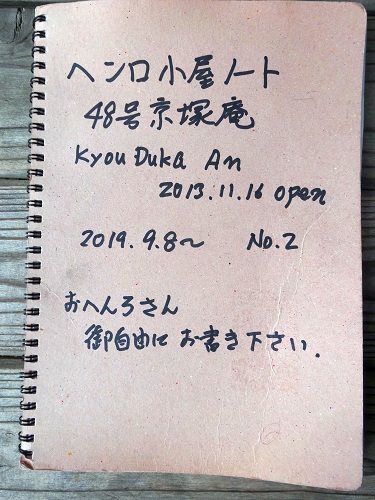 ヘンロ小屋ノート
48号京塚庵
Kyou Duka An
2013.11.16 open
2019.9.8〜 No.2
おへんろさん
御自由にお書き下さい.